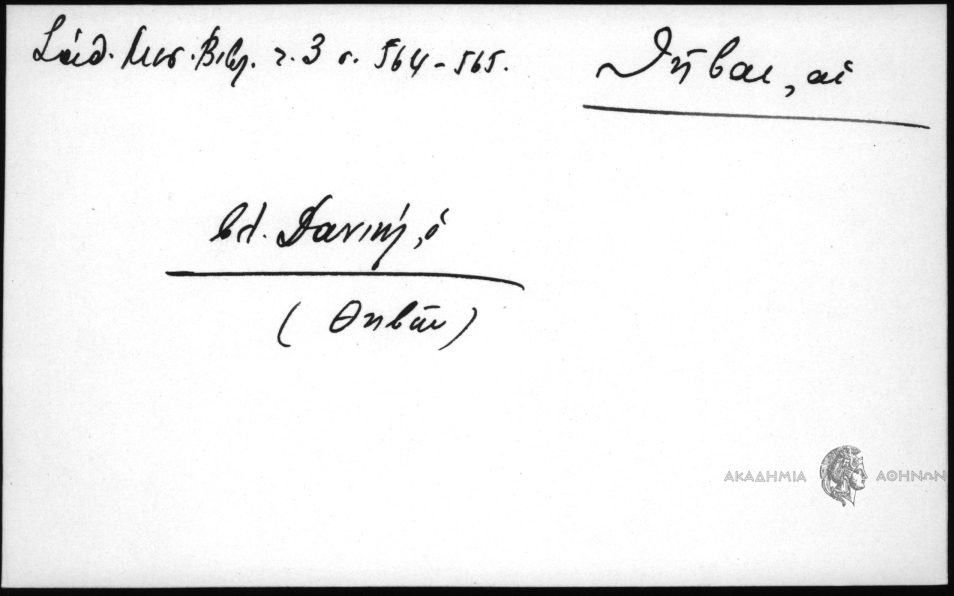 Σάθ. Μεσ. Βιβλ. τ. 3 σ. 564-565.
Θῆβαι, αἱ
βλ. Δανιήλ, ὁ
(Θηβῶν)
ΑΚΑΔΗΜΙΑ ΑΘΗΝΩΝ